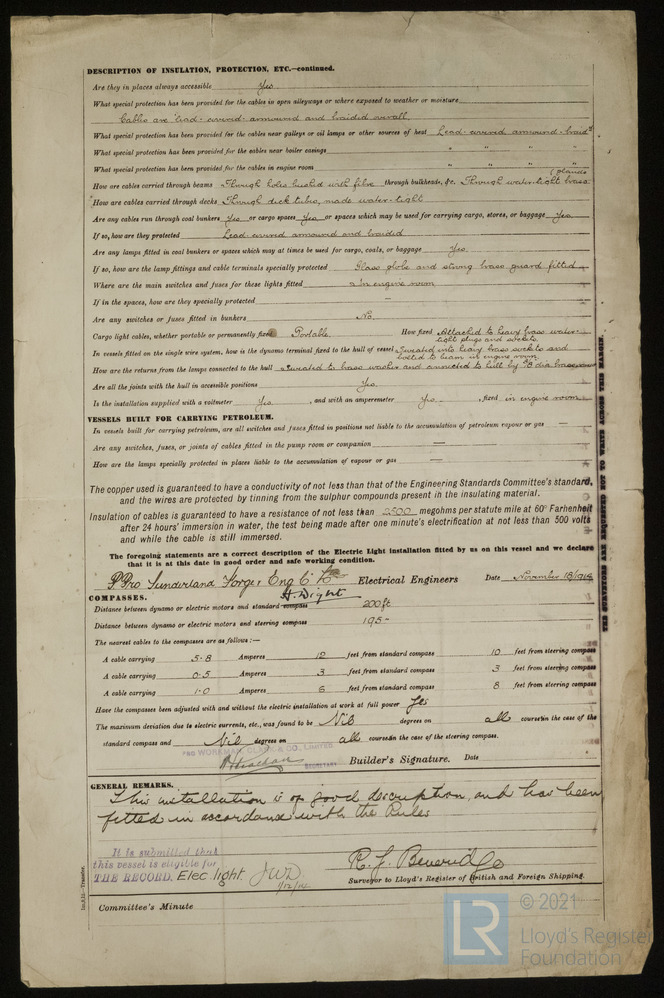 DESCRIPTION OF INSULATION, PROTECTION, ETC.—continued.
Are they in places always accessible Yes
What special protection has been provided for the cables in open alleyways or where exposed to weather or moisture
Cables are lead-covered armoured and braided overall
What special protection has been provided for the cables near galleys or oil lamps or other sources of heat Lead-covered armoured braidd
What special protection has been provided for the cables near boiler casings " " "
What special protection has been provided for the cables in engine room " " "
How are cables carried through beams Through holes bushed with fibre through bulkheads, &c. Through water-tight brass glands
How are cables carried through decks Through deck tubes, made water-tight
Are any cables run through coal bunkers Yes or cargo spaces Yes or spaces which may be used for carrying cargo, stores, or baggage Yes
If so, how are they protected Lead covered armoured and braided
Are any lamps fitted in coal bunkers or spaces which may at times be used for cargo, coals, or baggage Yes
If so, how are the lamp fittings and cable terminals specially protected Glass globe and strong brass guard fitted
Where are the main switches and fuses for these lights fitted In engine room
If in the spaces, how are they specially protected —
Are any switches or fuses fitted in bunkers No.
Cargo light cables, whether portable or permanently fixed Portable. How fixed Attached to heavy brass water-tight plugs and sockets
In vessels fitted on the single wire system, how is the dynamo terminal fixed to the hull of vessel Sweated into heavy brass sockets and bolted to beam in engine room.
How are the returns from the lamps connected to the hull Sweated to brass washer and connected to hull by 3/8 dia brass screw
Are all the joints with the hull in accessible positions Yes.
Is the installation supplied with a voltmeter Yes , and with an amperemeter Yes , fixed in engine room
VESSELS BUILT FOR CARRYING PETROLEUM.
In vessels built for carrying petroleum, are all switches and fuses fitted in positions not liable to the accumulation of petroleum vapour or gas —
Are any switches, fuses, or joints of cables fitted in the pump room or companion —
How are the lamps specially protected in places liable to the accumulation of vapour or gas —
The copper used is guaranteed to have a conductivity of not less than that of the Engineering Standards Committee's standard,
and the wires are protected by tinning from the sulphur compounds present in the insulating material.
Insulation of cables is guaranteed to have a resistance of not less than 2500 megohms per statute mile at 60° Farhenheit
after 24 hours' immersion in water, the test being made after one minute's electrification at not less than 500 volts
and while the cable is still immersed.
The foregoing statements are a correct description of the Electric Light installation fitted by us on this vessel and we declare
that it is at this date in good order and safe working condition.
P Pro Sunderland Forge & Eng Co Ld Electrical Engineers Date November 18/1914
H. Dight
COMPASSES.
Distance between dynamo or electric motors and standard compass 200 ft
Distance between dynamo or electric motors and steering compass 195 -
The nearest cables to the compasses are as follows:—
A cable carrying 5.8 Amperes 12 feet from standard compass 10 feet from steering compass
A cable carrying 0.5 Amperes 3 feet from standard compass 3 feet from steering compass
A cable carrying 1.0 Amperes 6 feet from standard compass 8 feet from steering compass
Have the compasses been adjusted with and without the electric installation at work at full power Yes
The maximum deviation due to electric currents, etc., was found to be Nil degrees on all course in the case of the
standard compass and Nil degrees on all course in the case of the steering compass.
PRO WORKMAN, CLARK & CO., LIMITED
SECRETARY Builder's Signature. Date
GENERAL REMARKS.
This installation is of good description, and has been
fitted in accordance with the Rules
It is submitted that
this vessel is eligible for
THE RECORD. Elec. light. JWD 1/12/14
R. J. Beveridge
Surveyor to Lloyd's Register of British and Foreign Shipping.
Committee's Minute
THE SURVEYORS ARE REQUESTED NOT TO WRITE ACROSS THIS MARGIN.
© 2021
LR
Lloyd's Register
Foundation